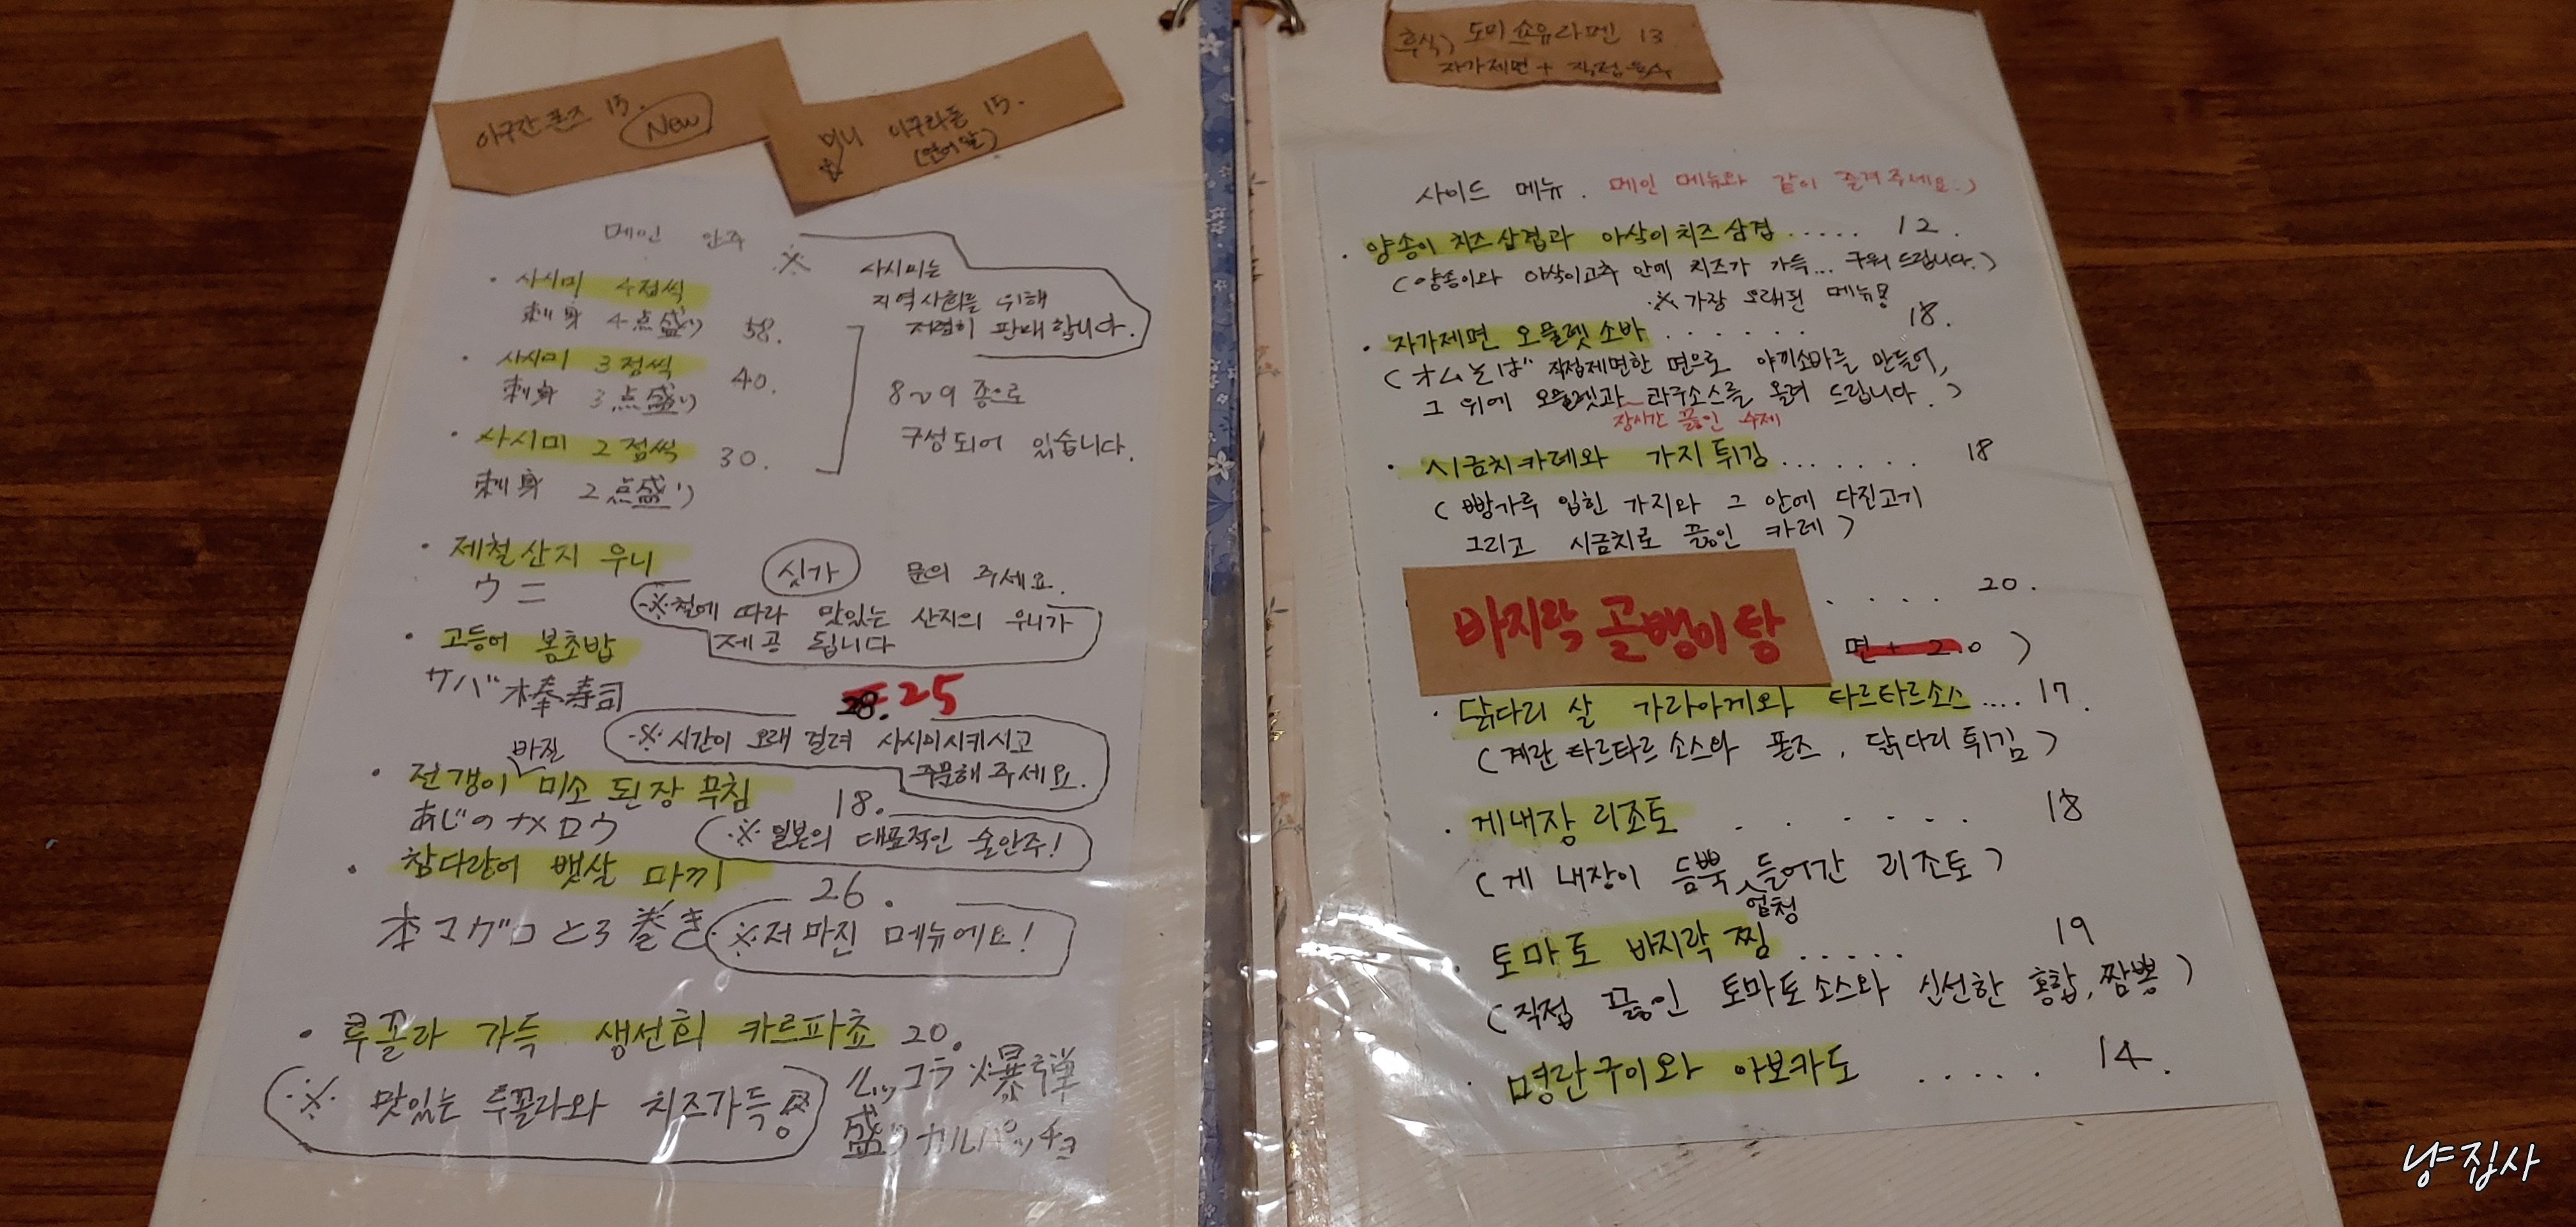 아구간폰즈 13. New
미니 이쿠라동 15.
(연어알)
메인 안주 ※
사시미는
지역사회를 위해
저렴히 판매합니다.
• 사시미 4점씩
刺身 4点盛り 58.
• 사시미 3점씩
刺身 3点盛り 40.
• 사시미 2점씩 30.
刺身 2点盛り
8~9 종으로
구성되어 있습니다.
• 제철산지 우니
ウニ
싯가 문의 주세요.
※철에 따라 맛있는 산지의 우니가
제공 됩니다
• 고등어 봄초밥
サバ棒寿司
28. 25
※ 시간이 오래 걸려 사시미시키시고
주문해 주세요.
바질
• 전갱이 미소 된장 무침
あじのナメロウ
18.
※ 일본의 대표적인 술안주!
• 참다랑어 뱃살 마끼
26.
本マグロとろ巻き
※저 마진 메뉴에요!
• 루꼴라 가득 생선회 카르파쵸 20.
※ 맛있는 루꼴라와 치즈가득
ルッコラ爆弾
盛りカルパッチョ
후식) 도미쇼유라멘 13
자가제면 + 직접
사이드 메뉴. 메인 메뉴와 같이 즐겨주세요:)
• 양송이 치즈삼겹과 아삭이치즈삼겹 ..... 12.
(양송이와 아삭이고추 안에 치즈가 가득... 구워 드립니다.)
※ 가장 오래된 메뉴
• 자가제면 오믈렛소바 ...... 18.
(オムそば 직접제면한 면으로 야끼소바를 만들어,
그 위에 오믈렛과 라구소스를 올려 드립니다.)
장시간 끓인 수제
• 시금치카레와 가지튀김 ...... 18
(빵가루 입힌 가지와 그 안에 다진고기
그리고 시금치로 끓인 카레)
바지락 골뱅이탕 .... 20.
면+ 2.0 )
• 닭다리 살 가라아게와 타르타르소스 .... 17.
(계란 타르타르 소스와 폰즈, 닭다리튀김)
• 게내장 리조토 ...... 18
(게 내장이 듬뿍 들어간 리조토)
엄청
• 토마토 바지락 찜 ..... 19
(직접 끓인 토마토소스와 신선한 홍합, 짬뽕)
• 명란구이와 아보카도 ..... 14.
냥집사